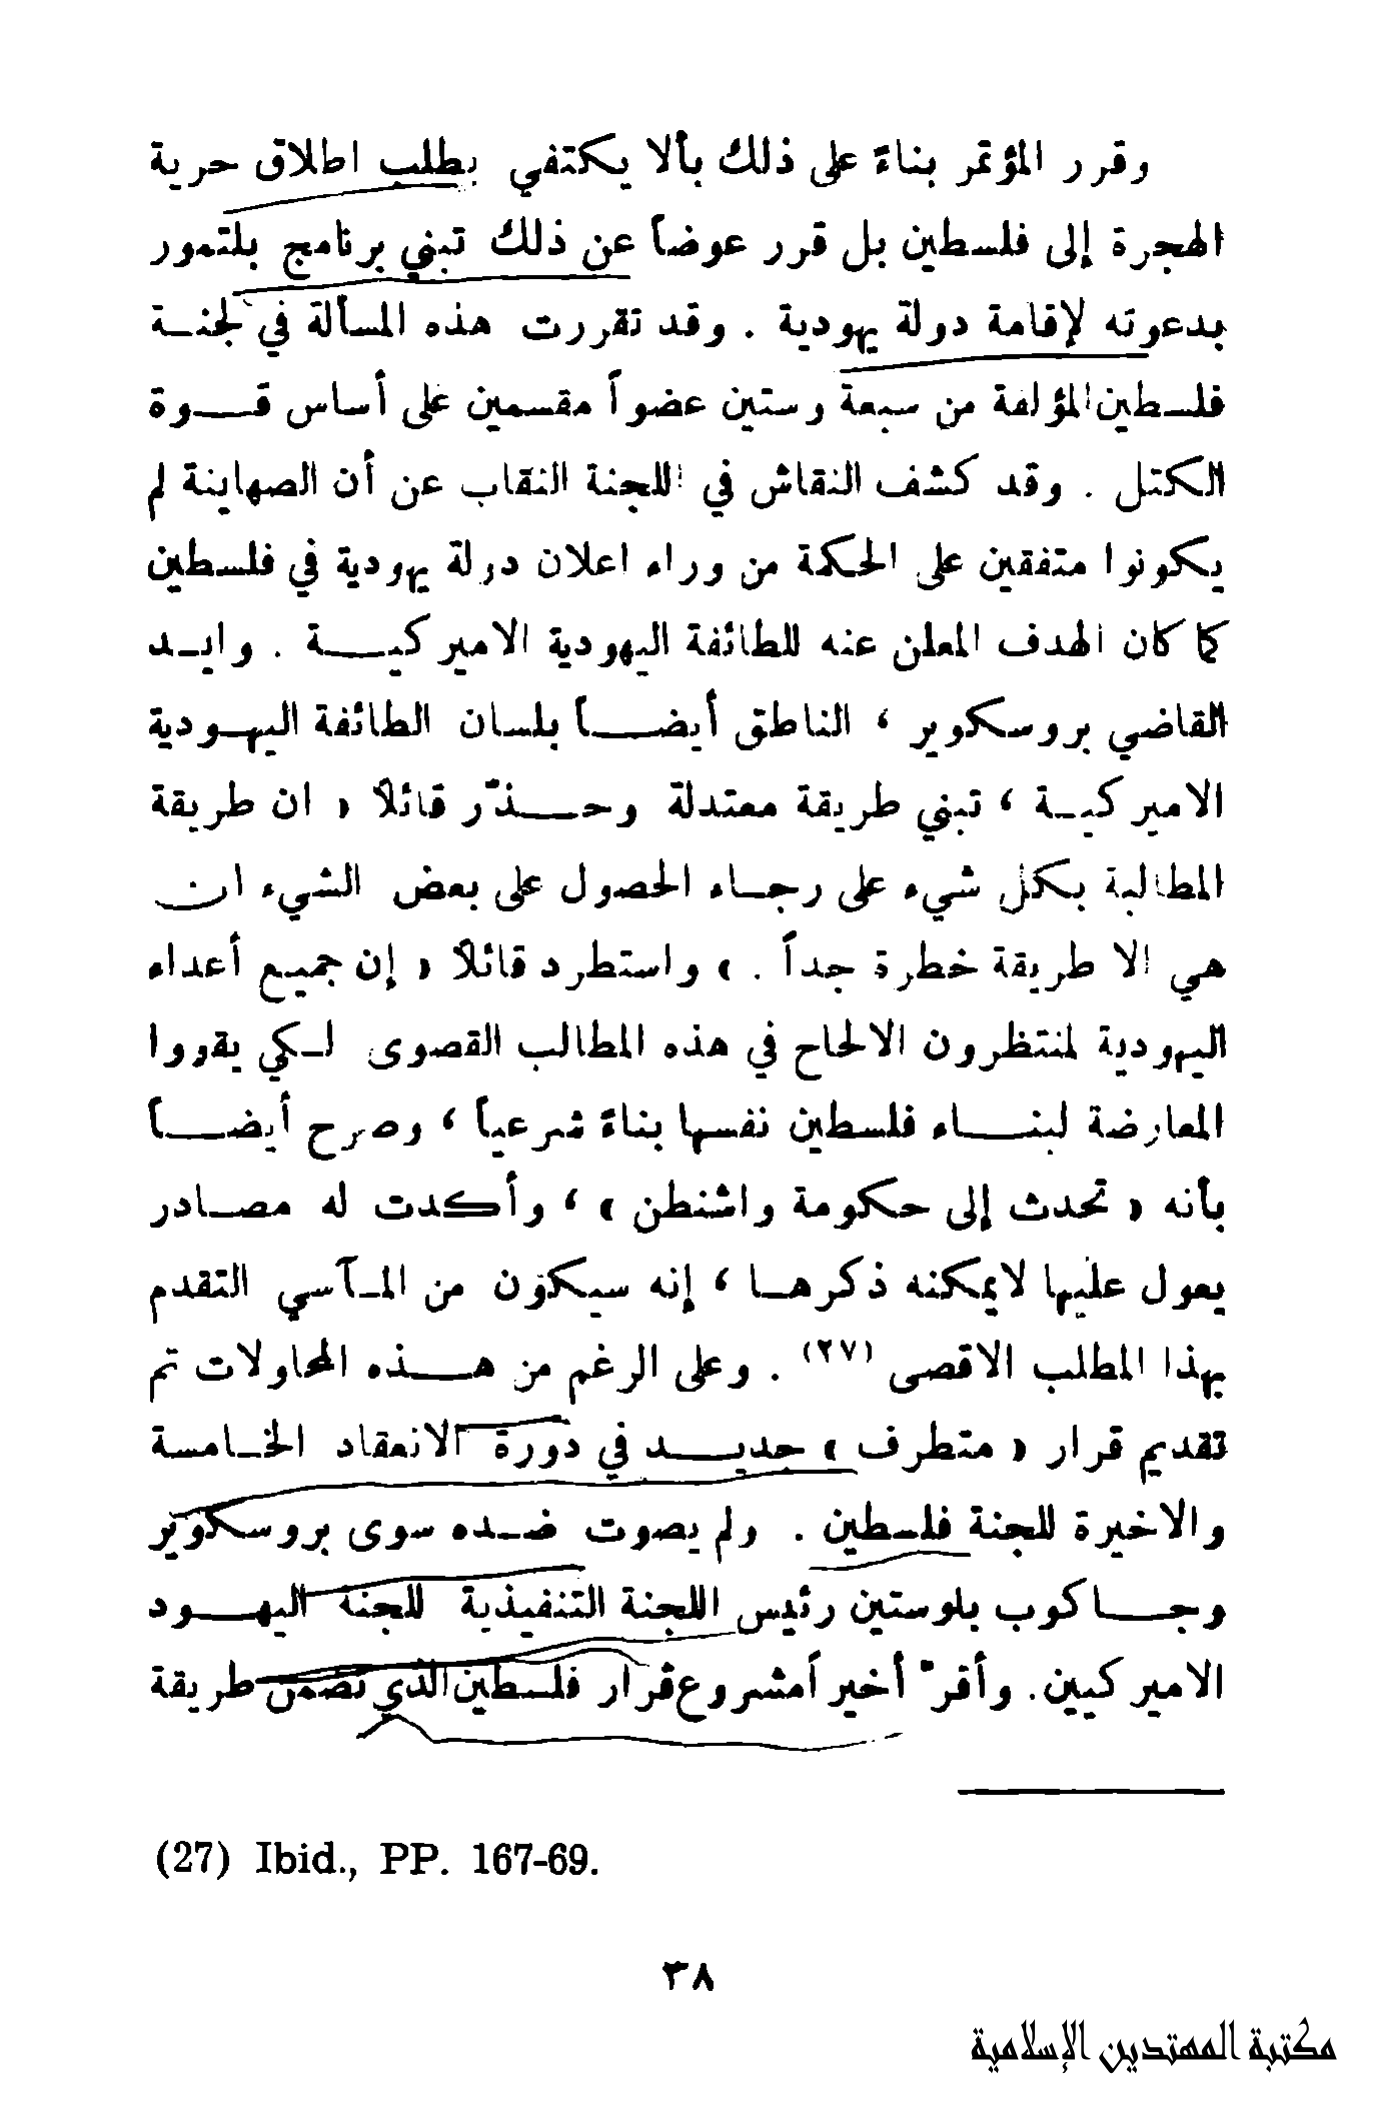 وقرر المؤتمر بناءً على ذلك بألا يكتفي بطلب اطلاق حرية
الهجرة إلى فلسطين بل قرر عوضاً عن ذلك تبني برنامج بلتمور
بدعوته لإقامة دولة يهودية . وقد تقررت هذه المسألة في لجنة
فلسطين المؤلفة من سبعة وستين عضواً مقسمين على أساس قوة
الكتل . وقد كشف النقاش في اللجنة النقاب عن أن الصهاينة لم
يكونوا متفقين على الحكمة من وراء اعلان دولة يهودية في فلسطين
كما كان الهدف المعلن عنه للطائفة اليهودية الاميركية . وايد
القاضي بروسكوير ، الناطق أيضاً بلسان الطائفة اليهودية
الاميركية ، تبني طريقة معتدلة وحذّر قائلاً « ان طريقة
المطالبة بكل شيء على رجاء الحصول على بعض الشيء ان
هي الا طريقة خطرة جداً . » واستطرد قائلاً « إن جميع أعداء
اليهودية لمنتظرون الالحاح في هذه المطالب القصوى لكي يقرروا
المعارضة لبناء فلسطين نفسها بناءً شرعياً ، وصرح أيضاً
بأنه « تحدث إلى حكومة واشنطن » ، وأكدت له مصادر
يعول عليها لايمكنه ذكرها ، إنه سيكون من المآسي التقدم
بهذا المطلب الاقصى (٢٧) . وعلى الرغم من هذه المحاولات تم
تقديم قرار « متطرف » جديد في دورة الانعقاد الخامسة
والاخيرة للجنة فلسطين . ولم يصوت ضده سوى بروسكوير
وجاكوب بلوستين رئيس اللجنة التنفيذية للجنة اليهود
الاميركيين . وأقرّ أخيراً مشروع قرار فلسطين الذي تضمن طريقة
(27) Ibid., PP. 167-69.
٣٨
مكتبة المهتدين الإسلامية